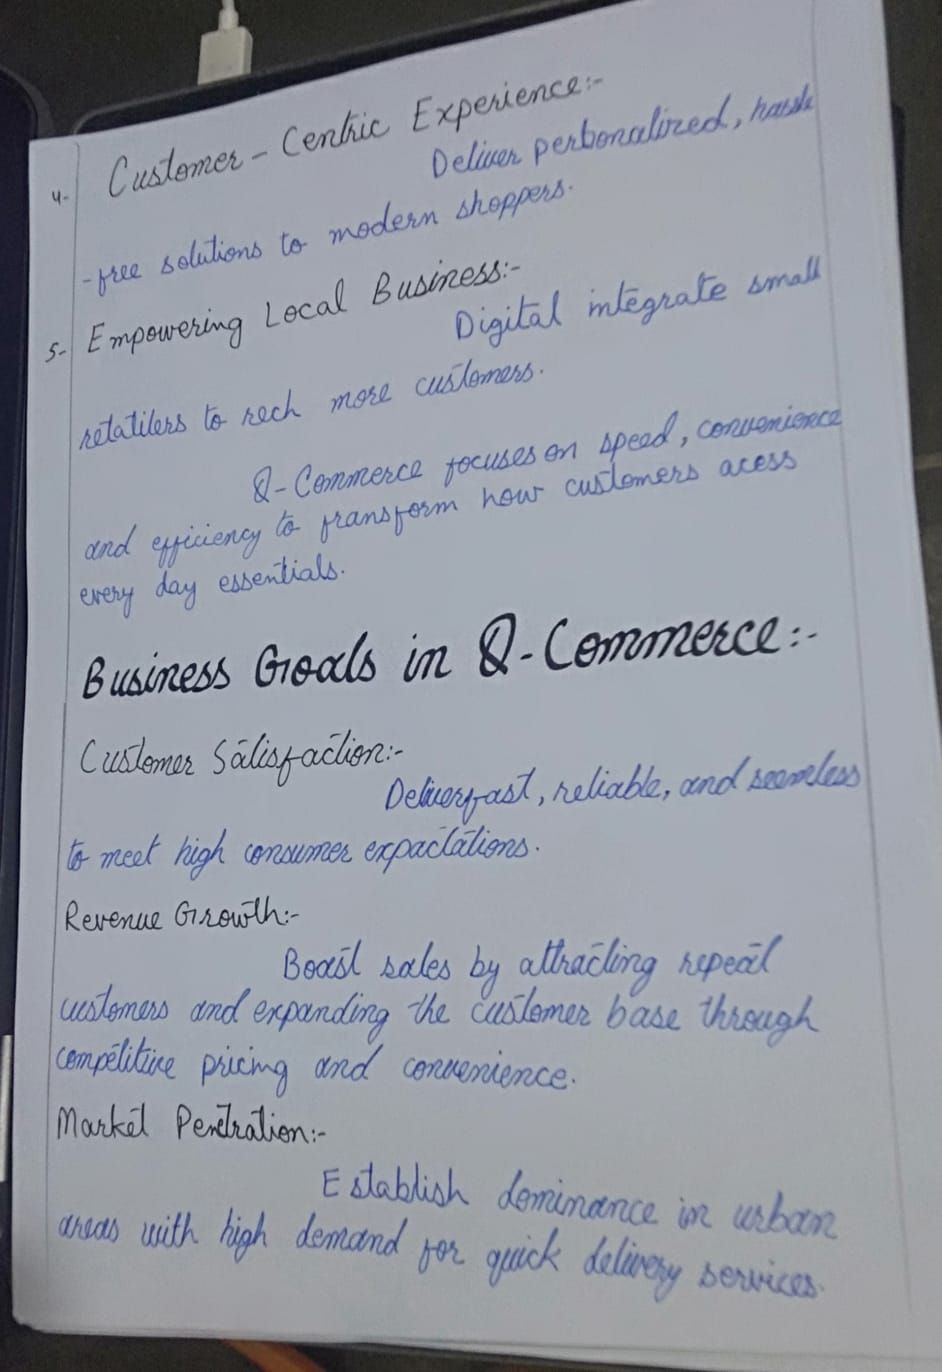 4- Customer-Centric Experience:-
Deliver perbonalized, hassle
-free solutions to modern shoppers.
5- Empowering Local Business:-
Digital integrate small
retatilers to rech more customers.
Q-Commerce focuses on speed, convenience
and efficiency to transform how customers acess
every day essentials.
Business Goals in Q-Commerce:-
Customer Satisfaction:-
Deliver fast, reliable, and seemless
to meet high consumer expactations.
Revenue Growth:-
Boast sales by attracting repeat
customers and expanding the customer base through
competitive pricing and convenience.
Market Pentration:-
Establish dominance in urban
areas with high demand for quick delivery services.